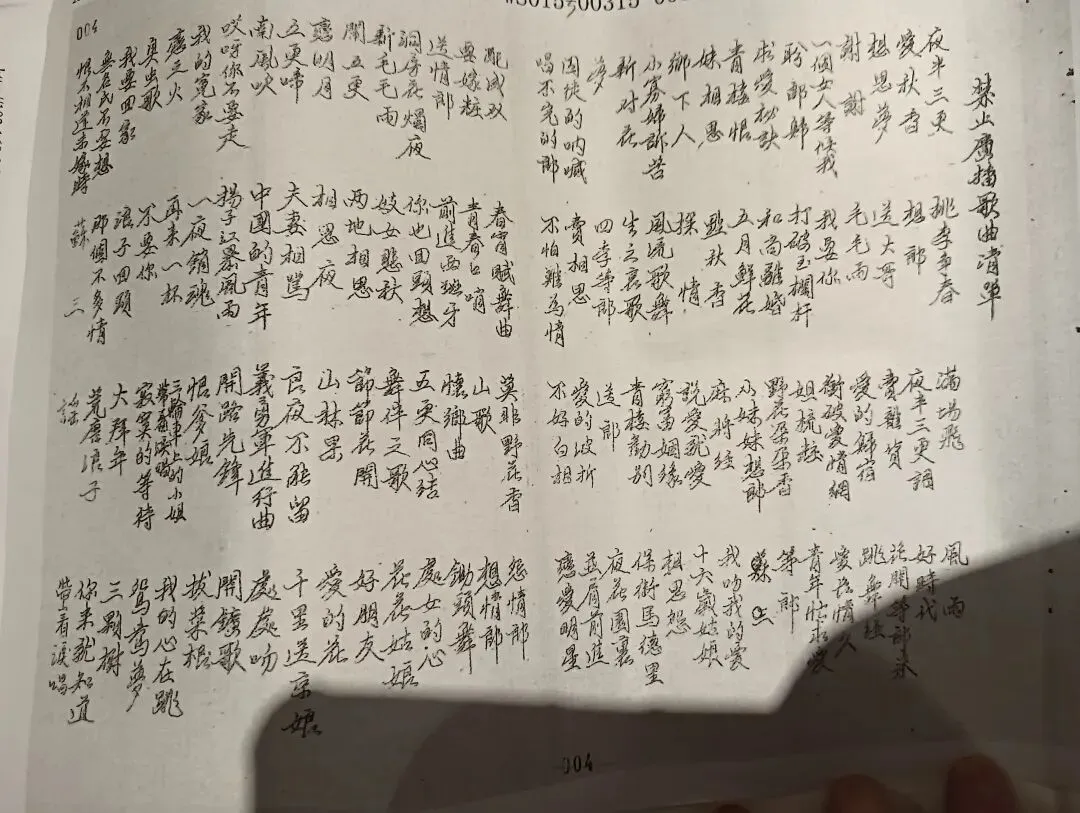 禁止廣播歌曲清單
夜半三更
愛秋香
想思夢
謝謝
一個女人等候我
盼郎歸
求愛秘訣
青樓恨
妹相思
鄉下人
小寡婦訴苦
新对花
夢
囚徒的吶喊
唱不完的郎
桃李争春
想郎
送大哥
毛毛雨
我要你
打破玉欄杆
和尚離婚
五月鮮花
點秋香
探情
風流歌舞
生之哀歌
四季等郎
賣相思
不怕難為情
滿場飛
夜半三更調
賣雜貨
愛的歸宿
衝破愛情網
姐梳粧
野花朵朵香
小妹妹想郎
麻將經
說愛就愛
窮富姻緣
青樓勸別
送郎
愛的波折
不好白相
風雨
好時代
等郎来
跳舞經
青年忙求愛
等郎
我吻我的愛
十六歲姑娘
想思怨
保衛馬德里
夜花園裏
並肩前進
戀愛明星
配成双
要嫁粧
送情郎
洞房花燭夜
新毛毛雨
鬧五更
戀明月
五更啼
南風吹
哎呀你不要走
我的冤家
戀之火
我要回家
恨不相逢未嫁時
春宵賦舞曲
青春口哨
前進西班牙
你也回頭想
妓女悲秋
两地相思
相思夜
夫妻相罵
中國的青年
揚子江暴風雨
一夜銷魂
再来一杯
不要你
浪子回頭
那個不多情
蘇三
莫非野花香
山歌
懷鄉曲
五更同心结
舞伴之歌
節節花開
山林果
良夜不能留
義勇軍進行曲
開路先鋒
恨爹娘
三輪車上的小姐
寂寞的等待
大拜年
荒唐浪子
謠
怨情郎
想情郎
鋤頭舞
處女的心
花花姑娘
好朋友
愛的花
千里送京娘
處處吻
開鑛歌
拔菜根
我的心在跳
鴛鴦夢
三顆樹
你来就知道
带着淚唱
004
004